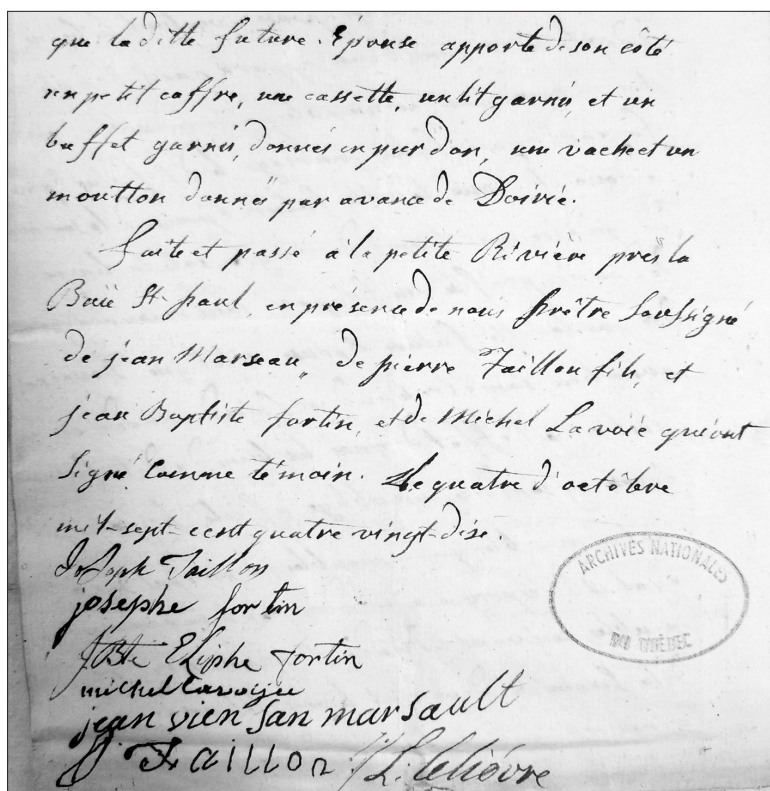 que la ditte future Épouse apporte de son côté
un petit coffre, une cassette, un lit garni, et un
buffet garni, donnés en pur don, une vache et un
moutton donnés par avance de Doirié.
faite et passé à la petite Rivière près la
Baïe St paul, en présence de nous prêtre Soussigné
de jean Marseau, de pierre Taillon fils, et
jean Baptiste fortin, et de Michel Lavoie qui ont
signé comme témoin. Le quatre d'octôbre
mil-sept-cent quatre vingt-dise.
Joseph Taillon
josephe fortin
JBte fortin
michel lavoÿee
jean vien san marsault
P Taillon L. Lelièvre
ARCHIVES NATIONALES
DU QUÉBEC